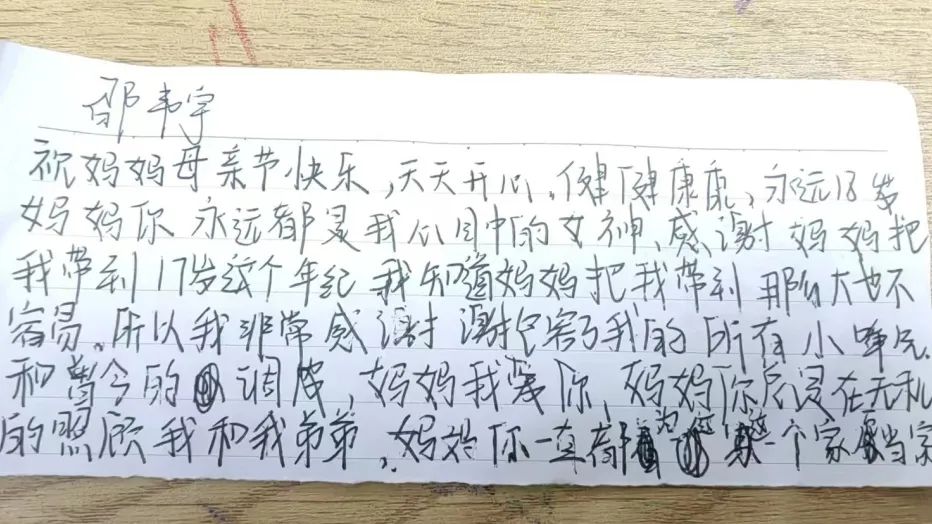 邵韦宇
祝妈妈母亲节快乐,天天开心,健健康康,永远18岁
妈妈你永远都是我心目中的女神,感谢妈妈把
我带到17岁这个年纪 我知道妈妈把我带到那么大也不
容易,所以我非常感谢 谢包容了我的所有小脾
和曾今的调皮,妈妈我爱你,妈妈你总是在无私
的照顾我和我弟弟,妈妈你一直都为这一个家当家